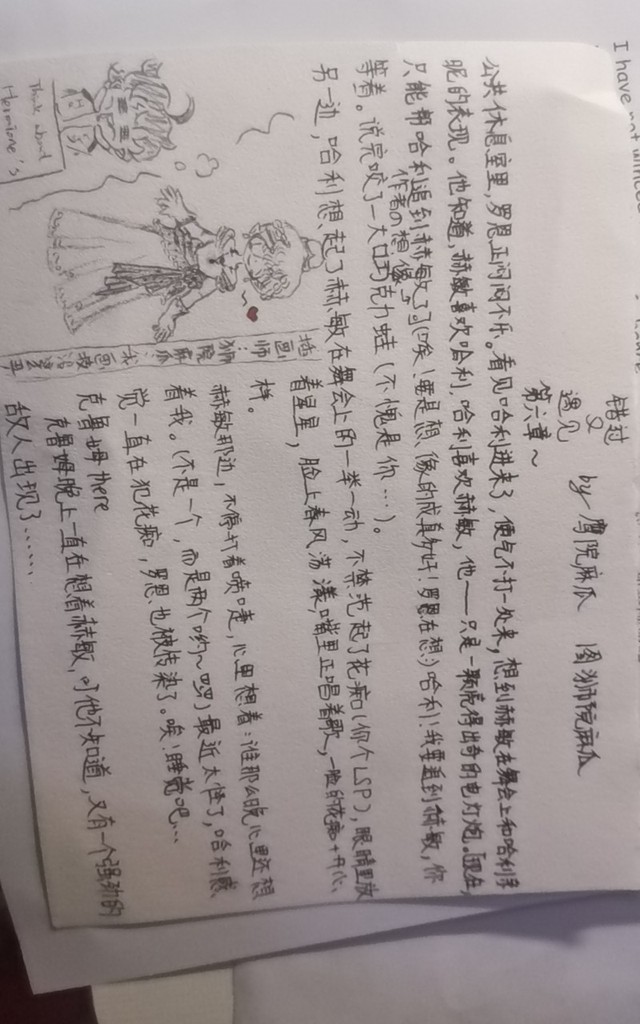 I have not
错过
又
遇见 by 鹰院麻瓜 图狮院麻瓜
第六章~
公共休息室里,罗恩正闷闷不乐。看见哈利进来了,便气不打一处来,想到赫敏在舞会上和哈利亲
昵的表现。他知道,赫敏喜欢哈利,哈利喜欢赫敏,他——只是一颗亮得出奇的电灯炮。「现在,
只能帮哈利追到赫敏了」(唉!要是想像的成真多好!罗恩在想:)哈利!我要追到赫敏,你
作者の想像
等着。说完咬了一大口巧克力蛙(不愧是你…)。
另一边,哈利想起了赫敏在舞会上的一举一动,不禁范起了花痴(你个LSP),眼睛里放
着星星,脸上春风荡漾,嘴里正唱着歌,一脸的花痴+开心
样。
赫敏那边,不停打着喷嚏,心里想着:谁那么晚心里还想
着我。(不是一个,而是两个哟~罗)最近太怪了,哈利感
觉一直在犯花痴,罗恩也被传染了。唉!睡觉吧…
克鲁姆there
克鲁姆晚上一直在想着赫敏,可他不知道,又有一个强劲的
敌人出现了……
Think about
Hermione's
插画师:狮院麻瓜
我画技没这里